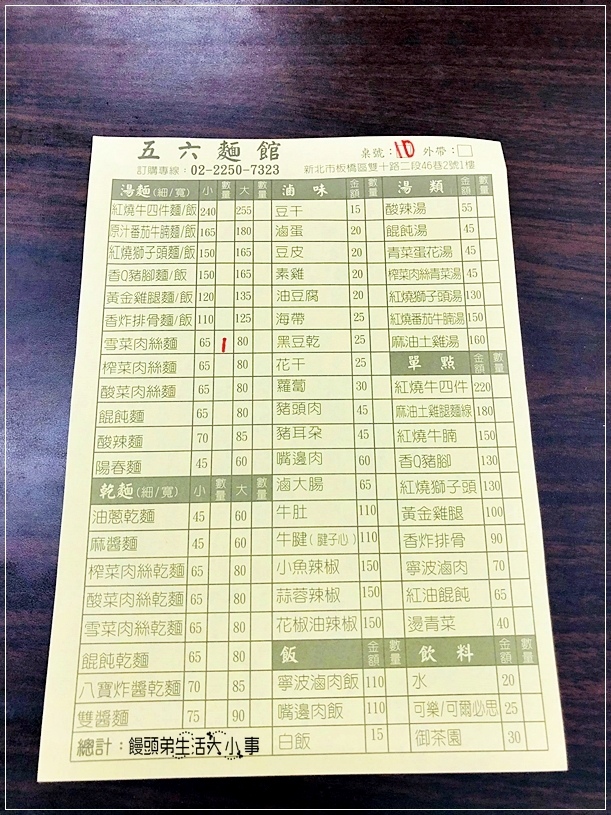 五六麵館
桌號：10 外帶：
訂購專線：02-2250-7323
新北市板橋區雙十路二段46巷2號1樓
湯麵(細/寬) 小 數量 大 數量
紅燒牛四件麵/飯 240 255
原汁番茄牛腩麵/飯 165 180
紅燒獅子頭麵/飯 150 165
香Q豬腳麵/飯 150 165
黃金雞腿麵/飯 120 135
香炸排骨麵/飯 110 125
雪菜肉絲麵 65 1 80
榨菜肉絲麵 65 80
酸菜肉絲麵 65 80
餛飩麵 65 80
酸辣麵 70 85
陽春麵 45 60
乾麵(細/寬) 小 數量 大 數量
油蔥乾麵 45 60
麻醬麵 45 60
榨菜肉絲乾麵 65 80
酸菜肉絲乾麵 65 80
雪菜肉絲乾麵 65 80
餛飩乾麵 65 80
八寶炸醬乾麵 70 85
雙醬麵 75 90
總計：
滷味 金額 數量
豆干 15
滷蛋 20
豆皮 20
素雞 20
油豆腐 20
海帶 25
黑豆乾 25
花干 25
蘿蔔 30
豬頭肉 45
豬耳朵 45
嘴邊肉 60
滷大腸 65
牛肚 110
牛腱(腱子心) 110
小魚辣椒 150
蒜蓉辣椒 150
花椒油辣椒 150
飯 金額 數量
寧波滷肉飯 110
嘴邊肉飯 110
白飯 15
湯類 金額 數量
酸辣湯 55
餛飩湯 45
青菜蛋花湯 45
榨菜肉絲青菜湯 45
紅燒獅子頭湯 130
紅燒番茄牛腩湯 150
麻油土雞湯 160
單點 金額 數量
紅燒牛四件 220
麻油土雞腿麵線 180
紅燒牛腩 150
香Q豬腳 130
紅燒獅子頭 130
黃金雞腿 100
香炸排骨 90
寧波滷肉 70
紅油餛飩 65
燙青菜 40
飲料 金額 數量
水 20
可樂/可爾必思 25
御茶園 30
饅頭弟生活大小事